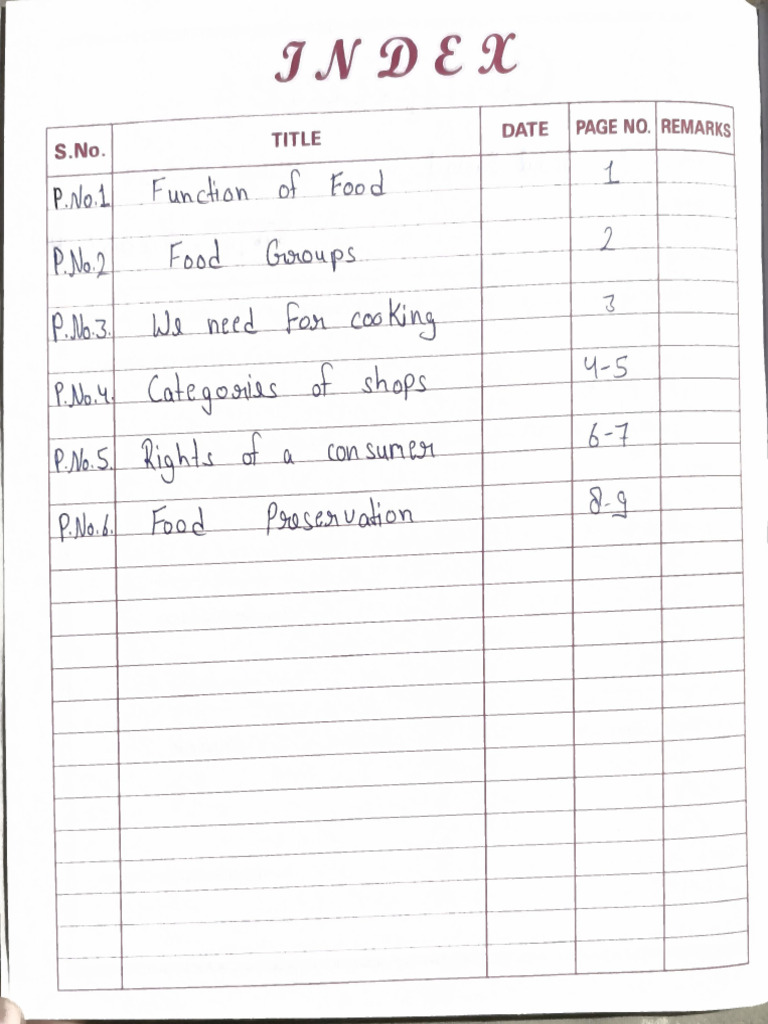 INDEX
S.No. TITLE DATE PAGE NO. REMARKS
P.No.1 Function of Food 1
P.No.2 Food Groups 2
P.No.3. We need for cooking 3
P.No.4. Categories of shops 4-5
P.No.5. Rights of a consumer 6-7
P.No.6. Food Preservation 8-9